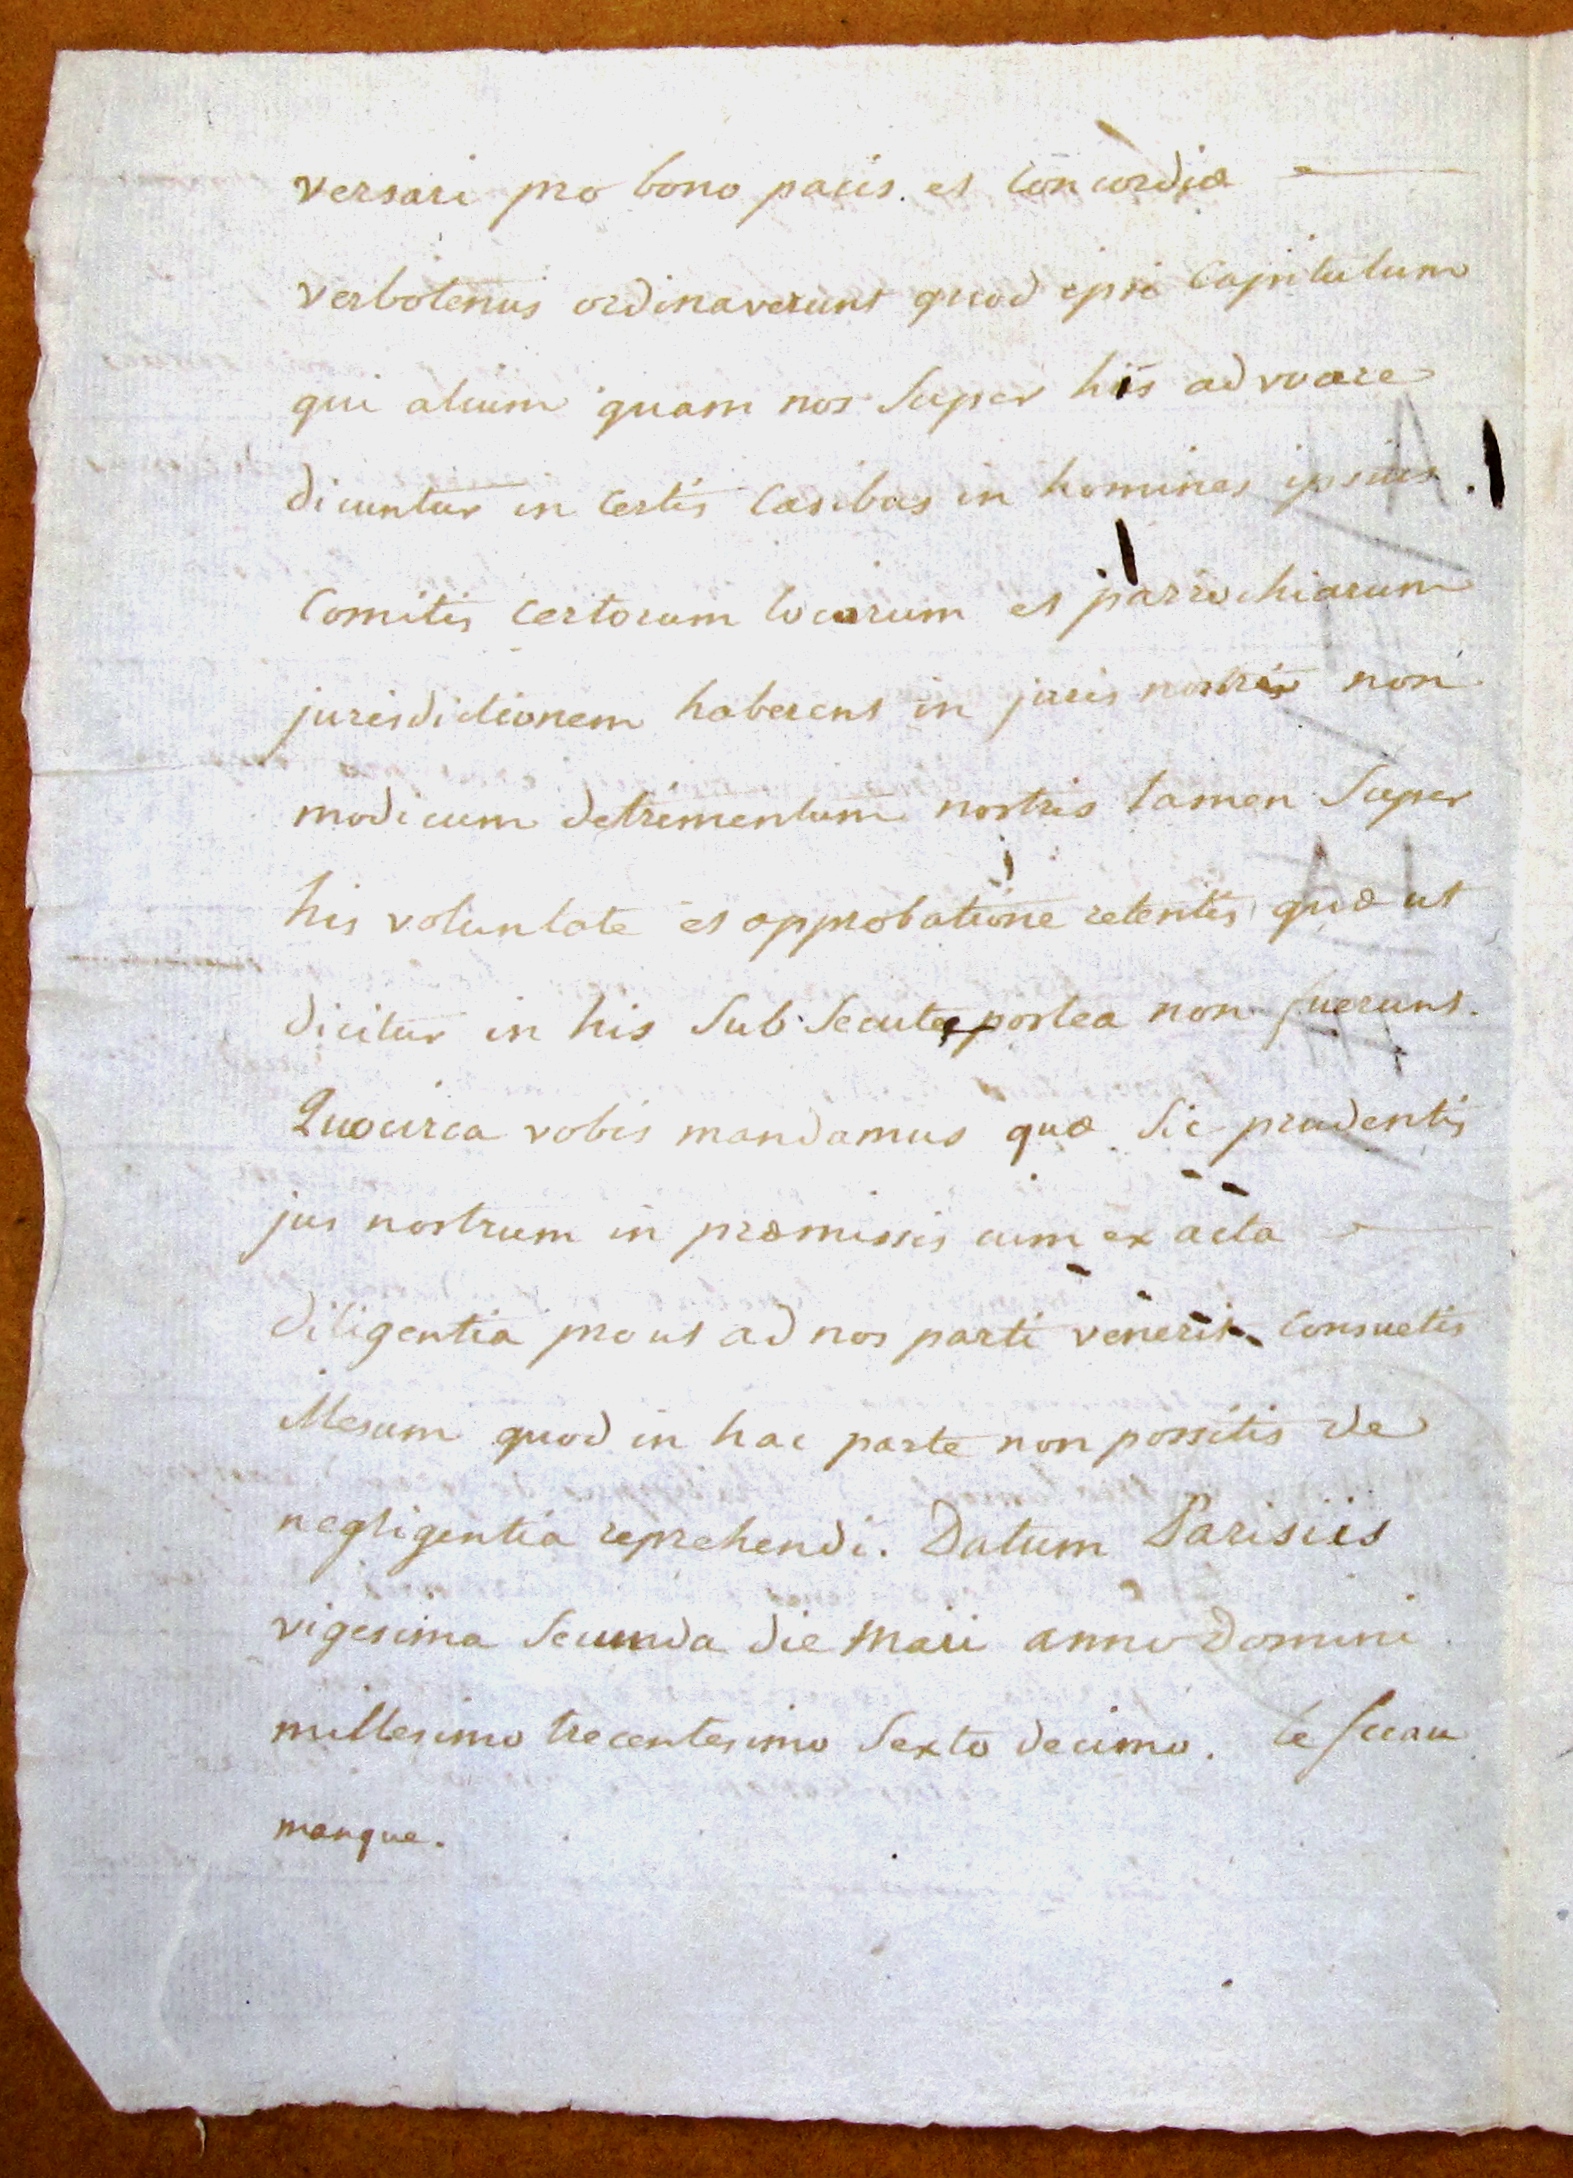 versari pro bono pacis et concordiæ
verbotenus ordinaverunt quod ipsi Capitulum
qui alium quam nos super his advoare
dicuntur in certis casibus in homines ipsius
Comitis certorum locorum et parrochiarum
jurisdictionem haberent in juris nostri non
modicum detrimentum nostris tamen super
his voluntate et approbatione retentis quæ ut
dicitur in his sub secutæ postea non fuerunt.
Quocirca vobis mandamus quæ sic prudentis
jus nostrum in præmissis cum exacta
diligentia prout ad nos parti venerit consuetis
illesum quod in hac parte non possitis de
negligentia reprehendi. Datum Parisiis
vigesima secunda die maii anno Domini
millesimo trecentesimo sexto decimo. le sceau
manque.